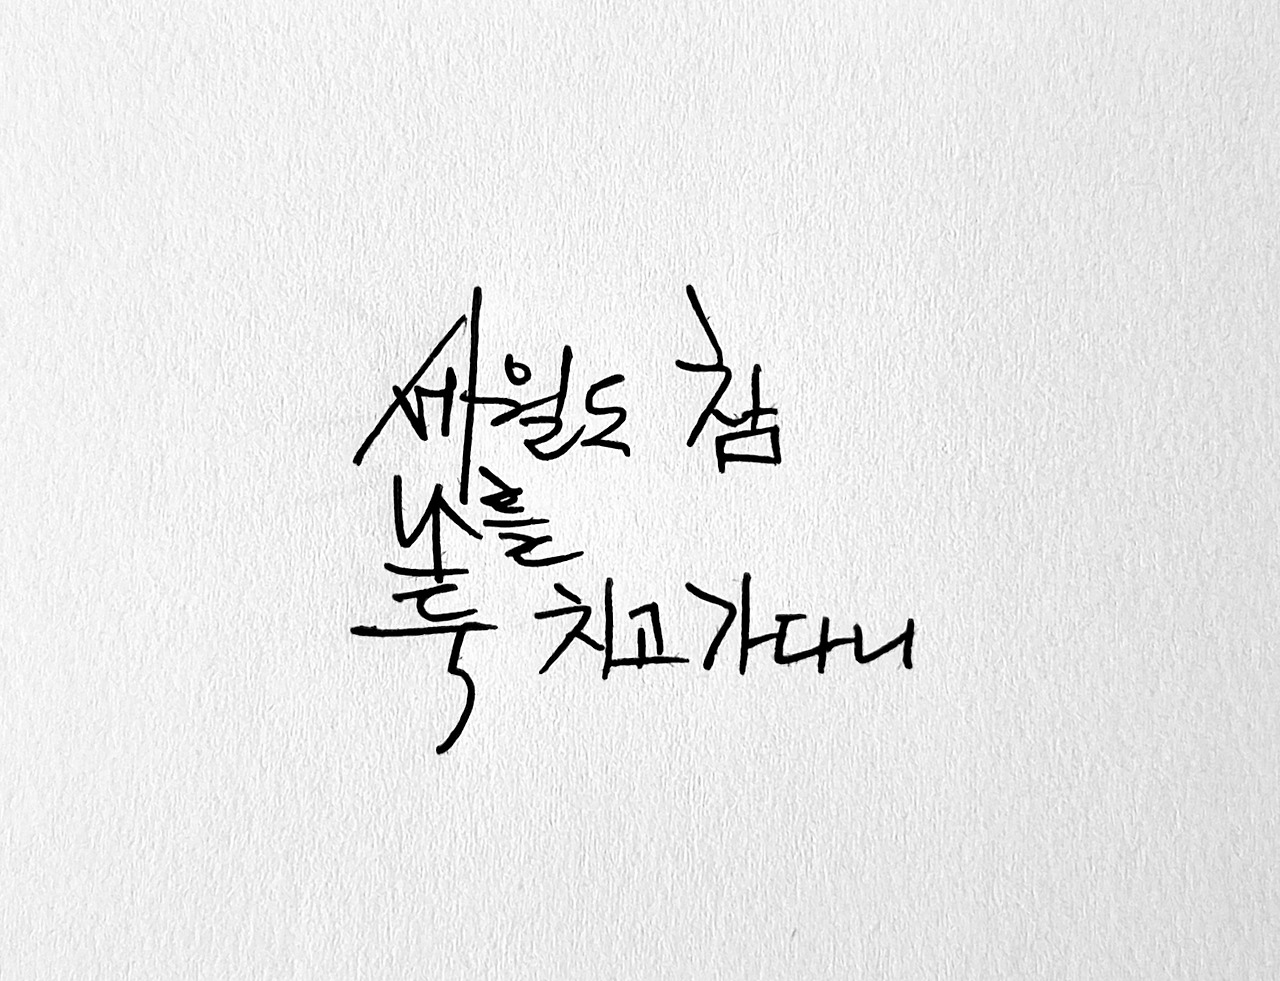 세월도 참
나를
툭 치고 가다니